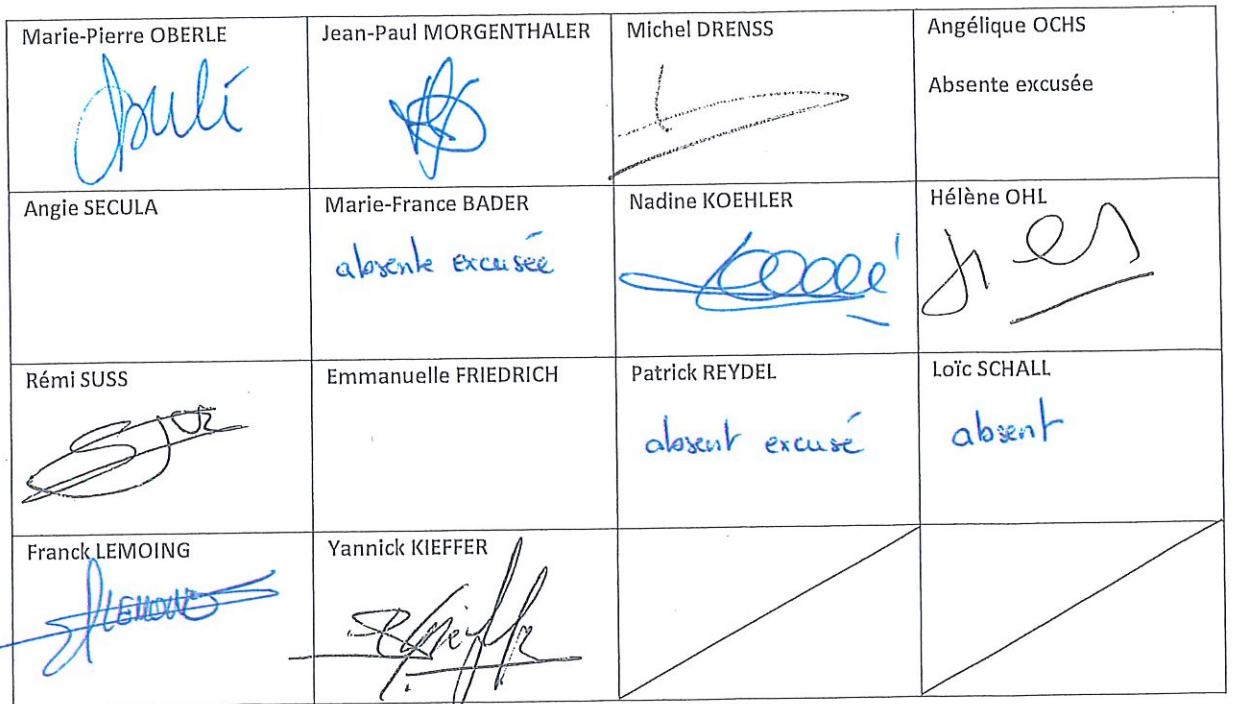 Marie-Pierre OBERLE
Jean-Paul MORGENTHALER
Michel DRENSS
Angélique OCHS
Absente excusée
Angie SECULA
Marie-France BADER
absente excusée
Nadine KOEHLER
Hélène OHL
Rémi SUSS
Emmanuelle FRIEDRICH
Patrick REYDEL
absent excusé
Loïc SCHALL
absent
Franck LEMOING
Yannick KIEFFER